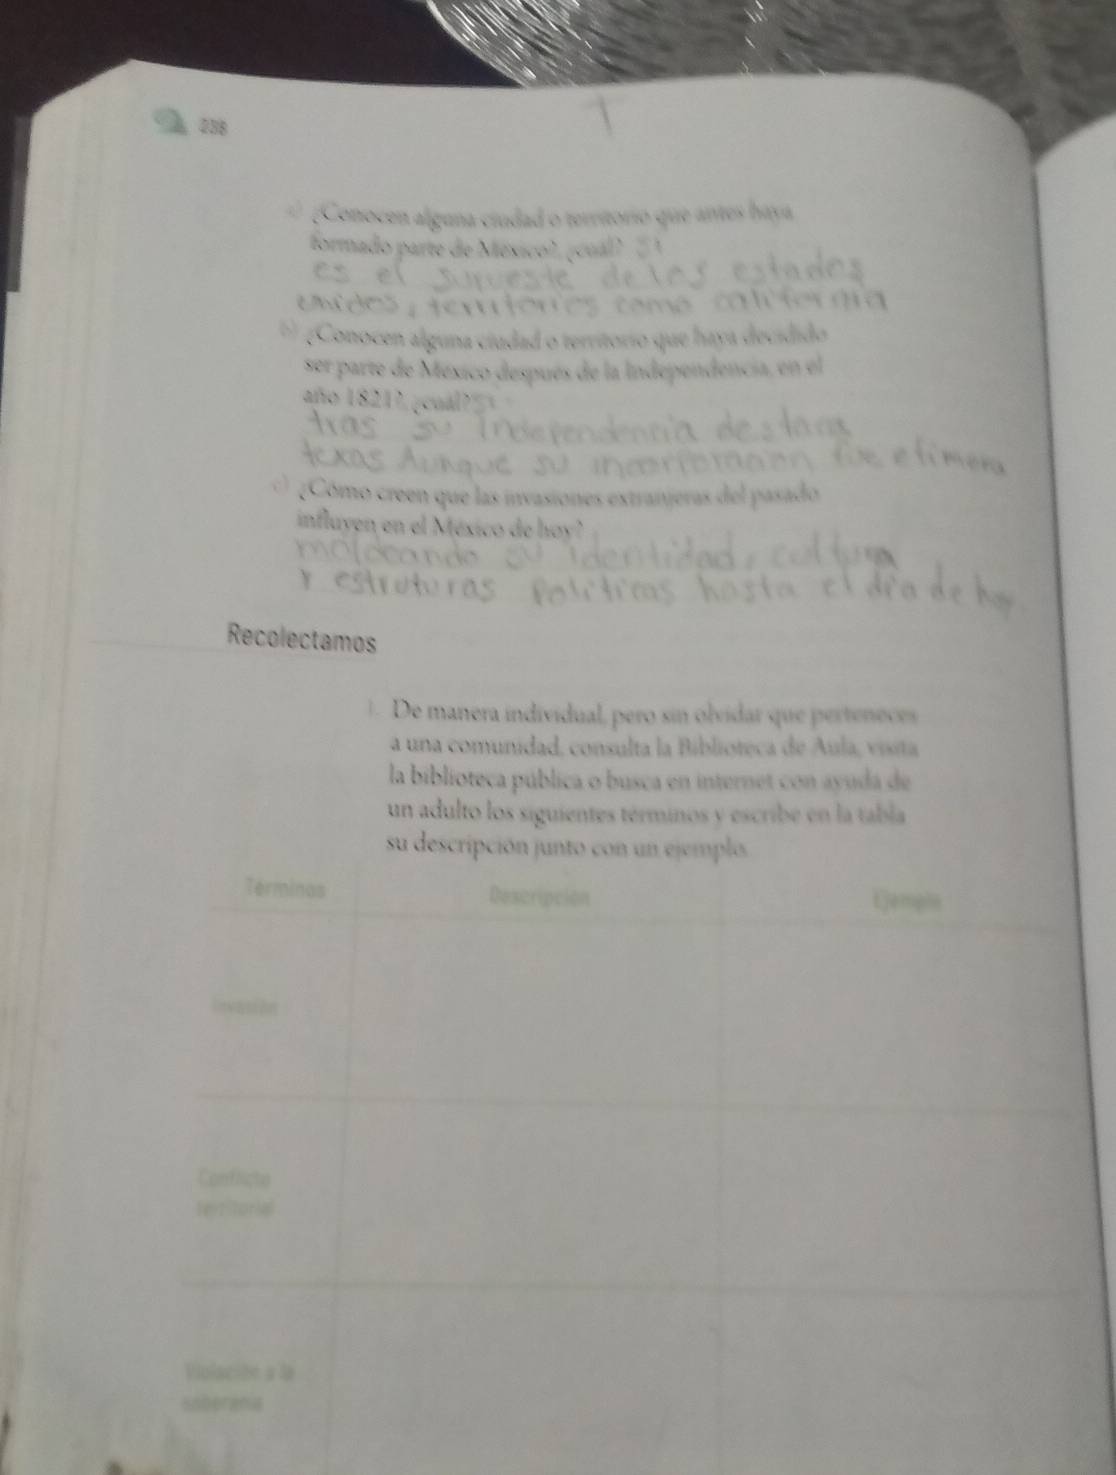 238
a) ¿Conocen alguna ciudad o territorio que antes haya
formado parte de México?, ¿cuál? Si
es el surveste de los estados
unidos, territorios como california
b) ¿Conocen alguna ciudad o territorio que haya decidido
ser parte de México después de la Independencia, en el
año 1821?, ¿cuál? Si
tras su Independencia destaca
texas Aunque su incorporación fue efimera
c) ¿Cómo creen que las invasiones extranjeras del pasado
influyen en el México de hoy?
moldeando su identidad, cultura
Y estruturas politicas hasta el día de hoy
Recolectamos
1. De manera individual, pero sin olvidar que perteneces
a una comunidad, consulta la Biblioteca de Aula, visita
la biblioteca pública o busca en internet con ayuda de
un adulto los siguientes términos y escribe en la tabla
su descripción junto con un ejemplo.
Términos Descripción Ejemplo
Invasión
Conflicto
territorial
Violación a la
soberanía